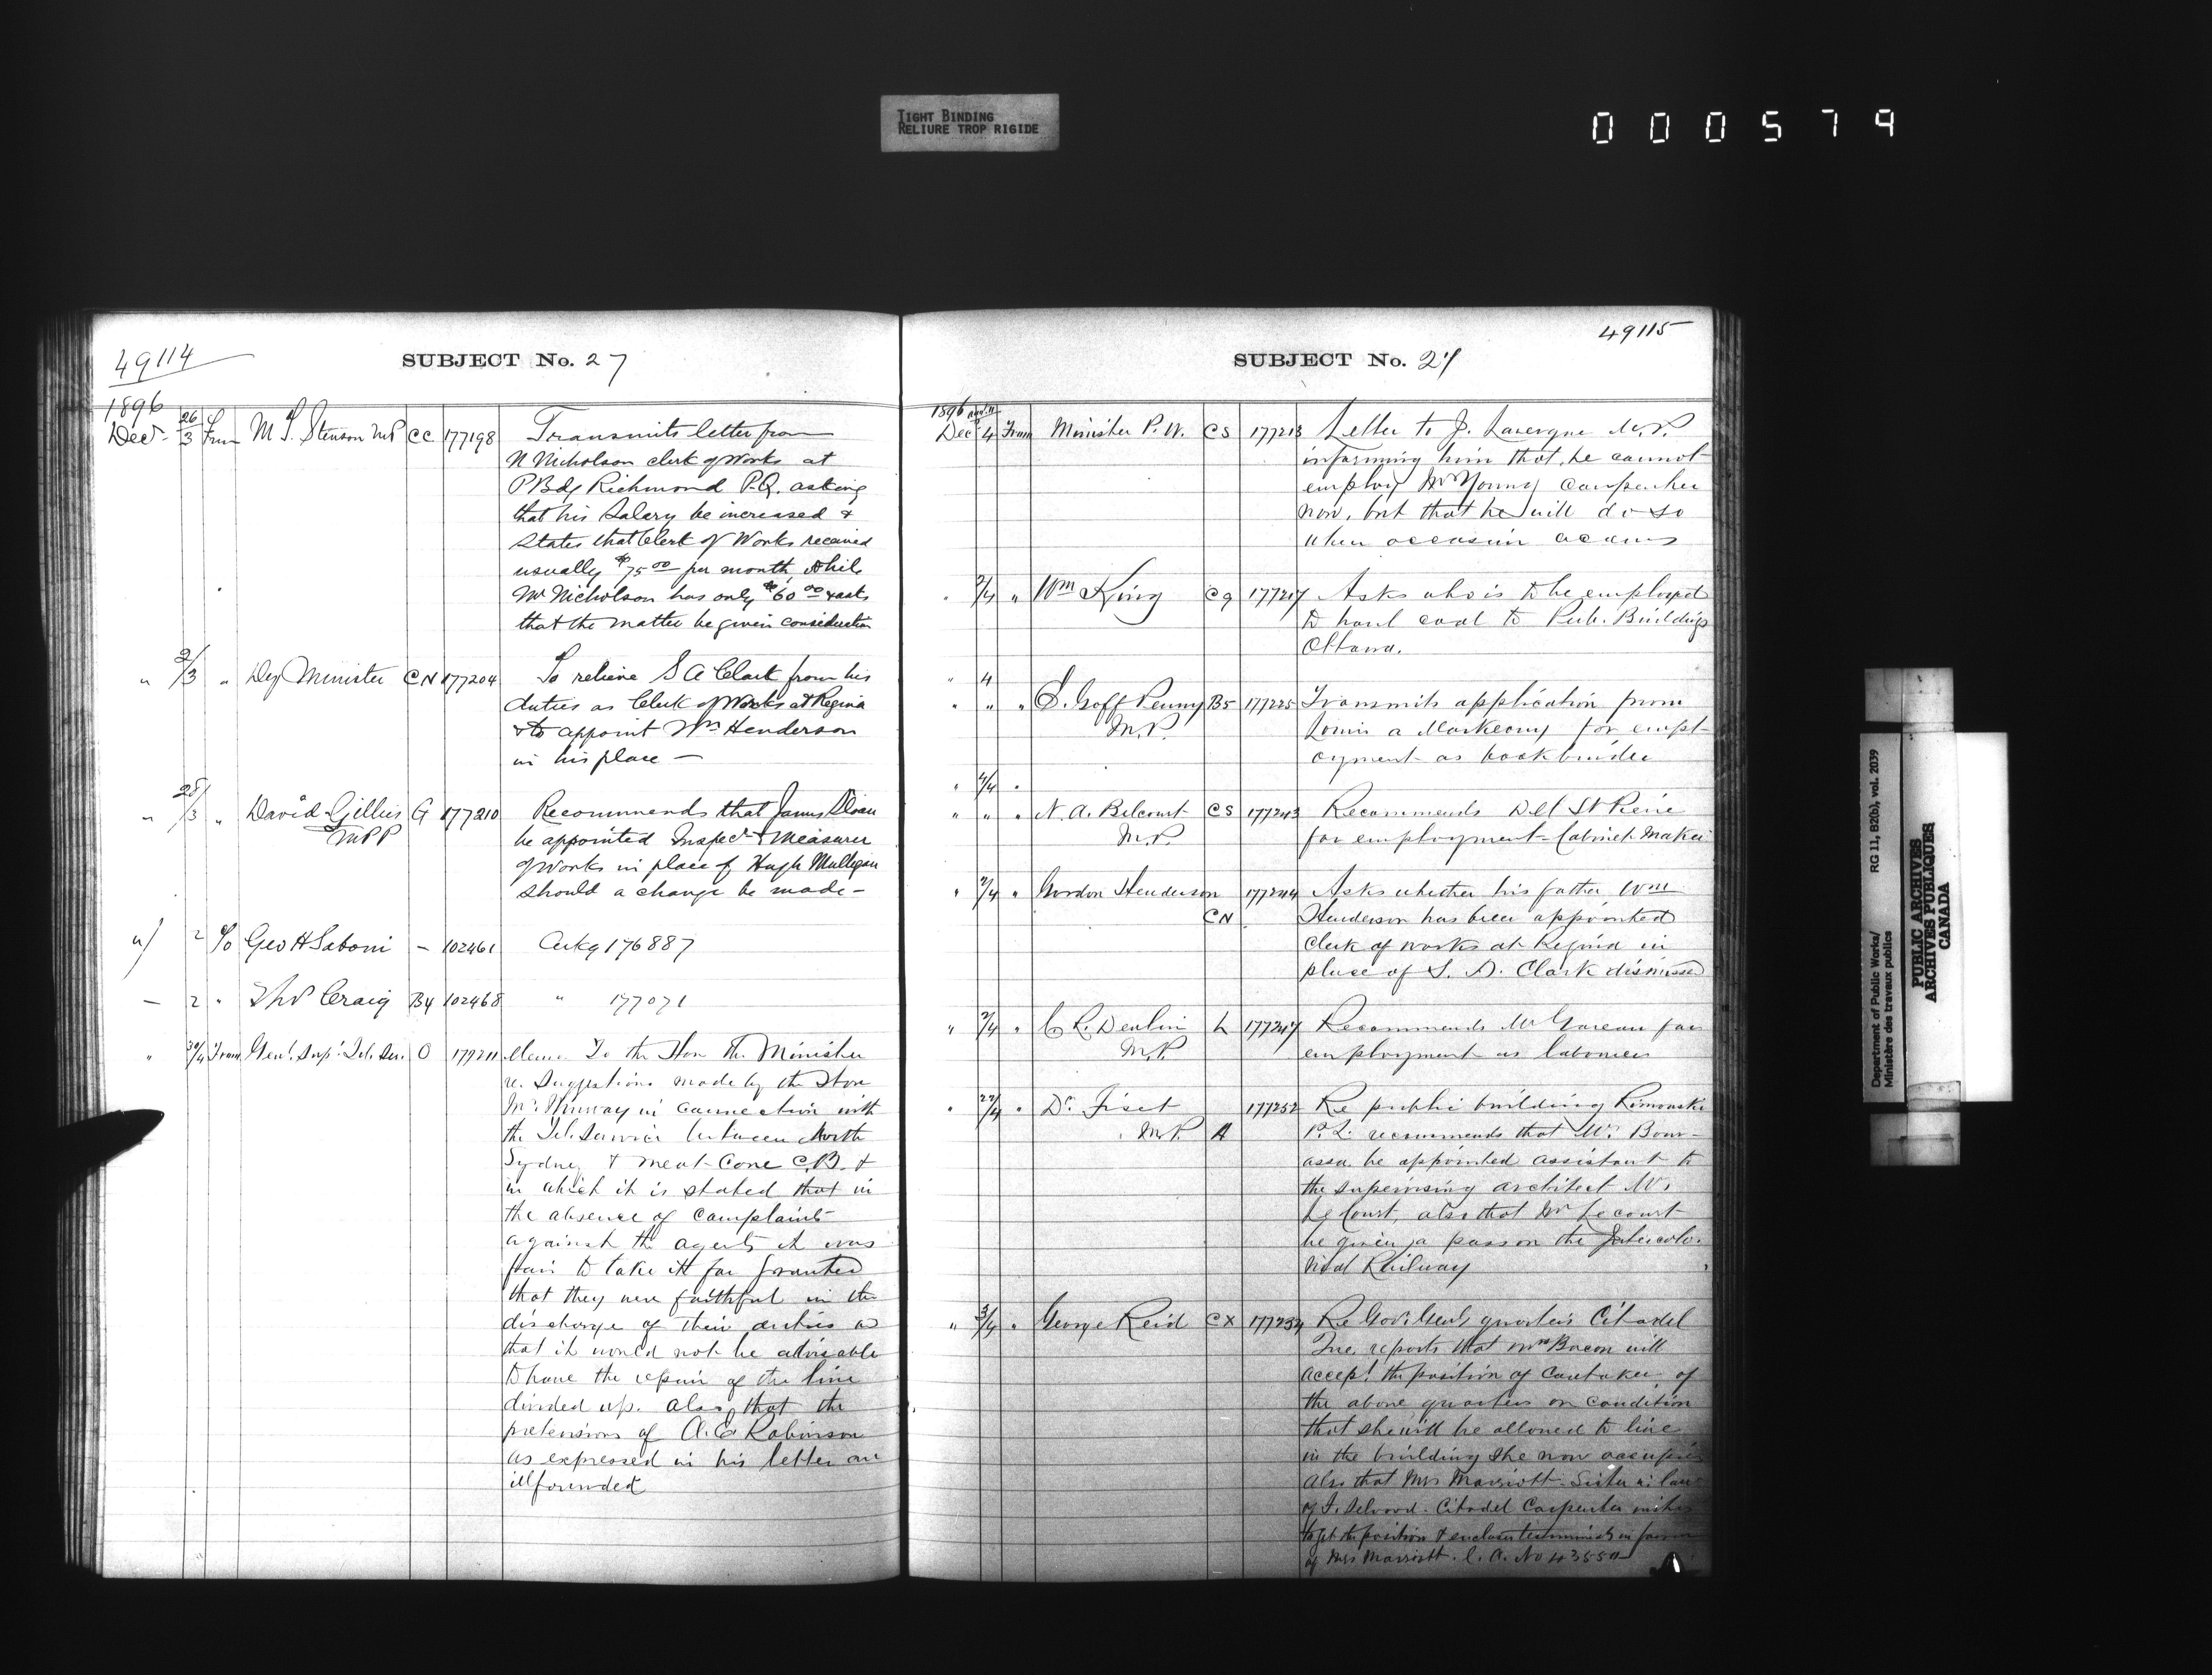 TIGHT BINDING
RELIURE TROP RIGIDE
000579
49114
SUBJECT No. 27
1896
Dec 26/3 From M T Stenson MP CC 177198 Transmits letter from
N Nicholson clerk of Works at
P Bdg Richmond P.Q. asking
that his Salary be increased &
States that Clerk of Works received
usually $75 00 per month, while
Mr Nicholson has only $60 00 & asks
that the matter be given consideration
" 2/3 " Dep Minister CN 177204 To relieve S A Clark from his
duties as Clerk of Works at Regina
& to appoint Wm Henderson
in his place —
" 28/3 " David Gillies G 177210 Recommends that James Sloan
MPP be appointed Inspec & Measurer
of Works in place of Hugh Mulligan
should a change be made —
2 % Geo H — 102461 Ackg 176887
— 2 " Thos Craig B4 102468 " 177071
" 30/4 From Genl. Supt. Tel. Ser. O 177211 Memo To the Hon the Minister
re. Suggestions made by the Hon
Mr. Murray in connection with
the Tel. Service between North
Sydney & Meat Cove C.B. &
in which it is stated that in
the absence of complaints
against the agents it was
fair to take it for granted
that they were faithful in the
discharge of their duties
that it would not be advisable
to have the repair of the line
divided up. also that the
pretensions of A. E. Robinson
as expressed in his letter are
ill founded
49115
SUBJECT No. 27
1896
Dec 4 From Minister P. W. CS 177213 Letter to J. Lavergne M.P.
informing him that he cannot
employ Mr Young carpenter
now, but that he will do so
when occasion occurs
" 2/4 " Wm King C9 177217 Asks who is to be employed
to haul coal to Pub. Buildings
Ottawa.
" 4
" " " E. Goff Penny B5 177225 Transmits application from
M.P. for empl-
oyment as bookbinder
" 4/4 "
" " " N. A. Belcourt CS 177243 Recommends Del St Pierre
M.P. for employment – Cabinet Maker
" 2/4 " Gordon Henderson 177244 Asks whether his father Wm
CN Henderson has been appointed
Clerk of works at Regina in
place of S. A. Clark dismissed
" 2/4 " C R. Devlin L 177247 Recommends Mr Gareau for
M.P. employment as labourer
" 22/4 " Dr. Fiset 177252 Re public building Rimouski
M.P. A P.Q. recommends that Mr. Bour-
assa be appointed assistant to
the supervising architect Mr.
Le Court, also that Mr Lecourt
be given a pass on the Intercolo-
nial Railway
" 3/4 " George Reid CX 177254 Re Gov. Genl's quarters Citadel
Que. reports that Mrs Bacon will
accept the position of Caretaker of
the above quarters on condition
that she will be allowed to live
in the building she now occupies
Also that Mrs Marriott – Sister in law
of Selwood – Citadel Carpenter wishes
to get the position & encloses testimonials in favour
of Mrs Marriott. C. A. No 43550
Department of Public Works/
Ministère des travaux publics
RG 11, B2(b), vol. 2039
PUBLIC ARCHIVES
ARCHIVES PUBLIQUES
CANADA